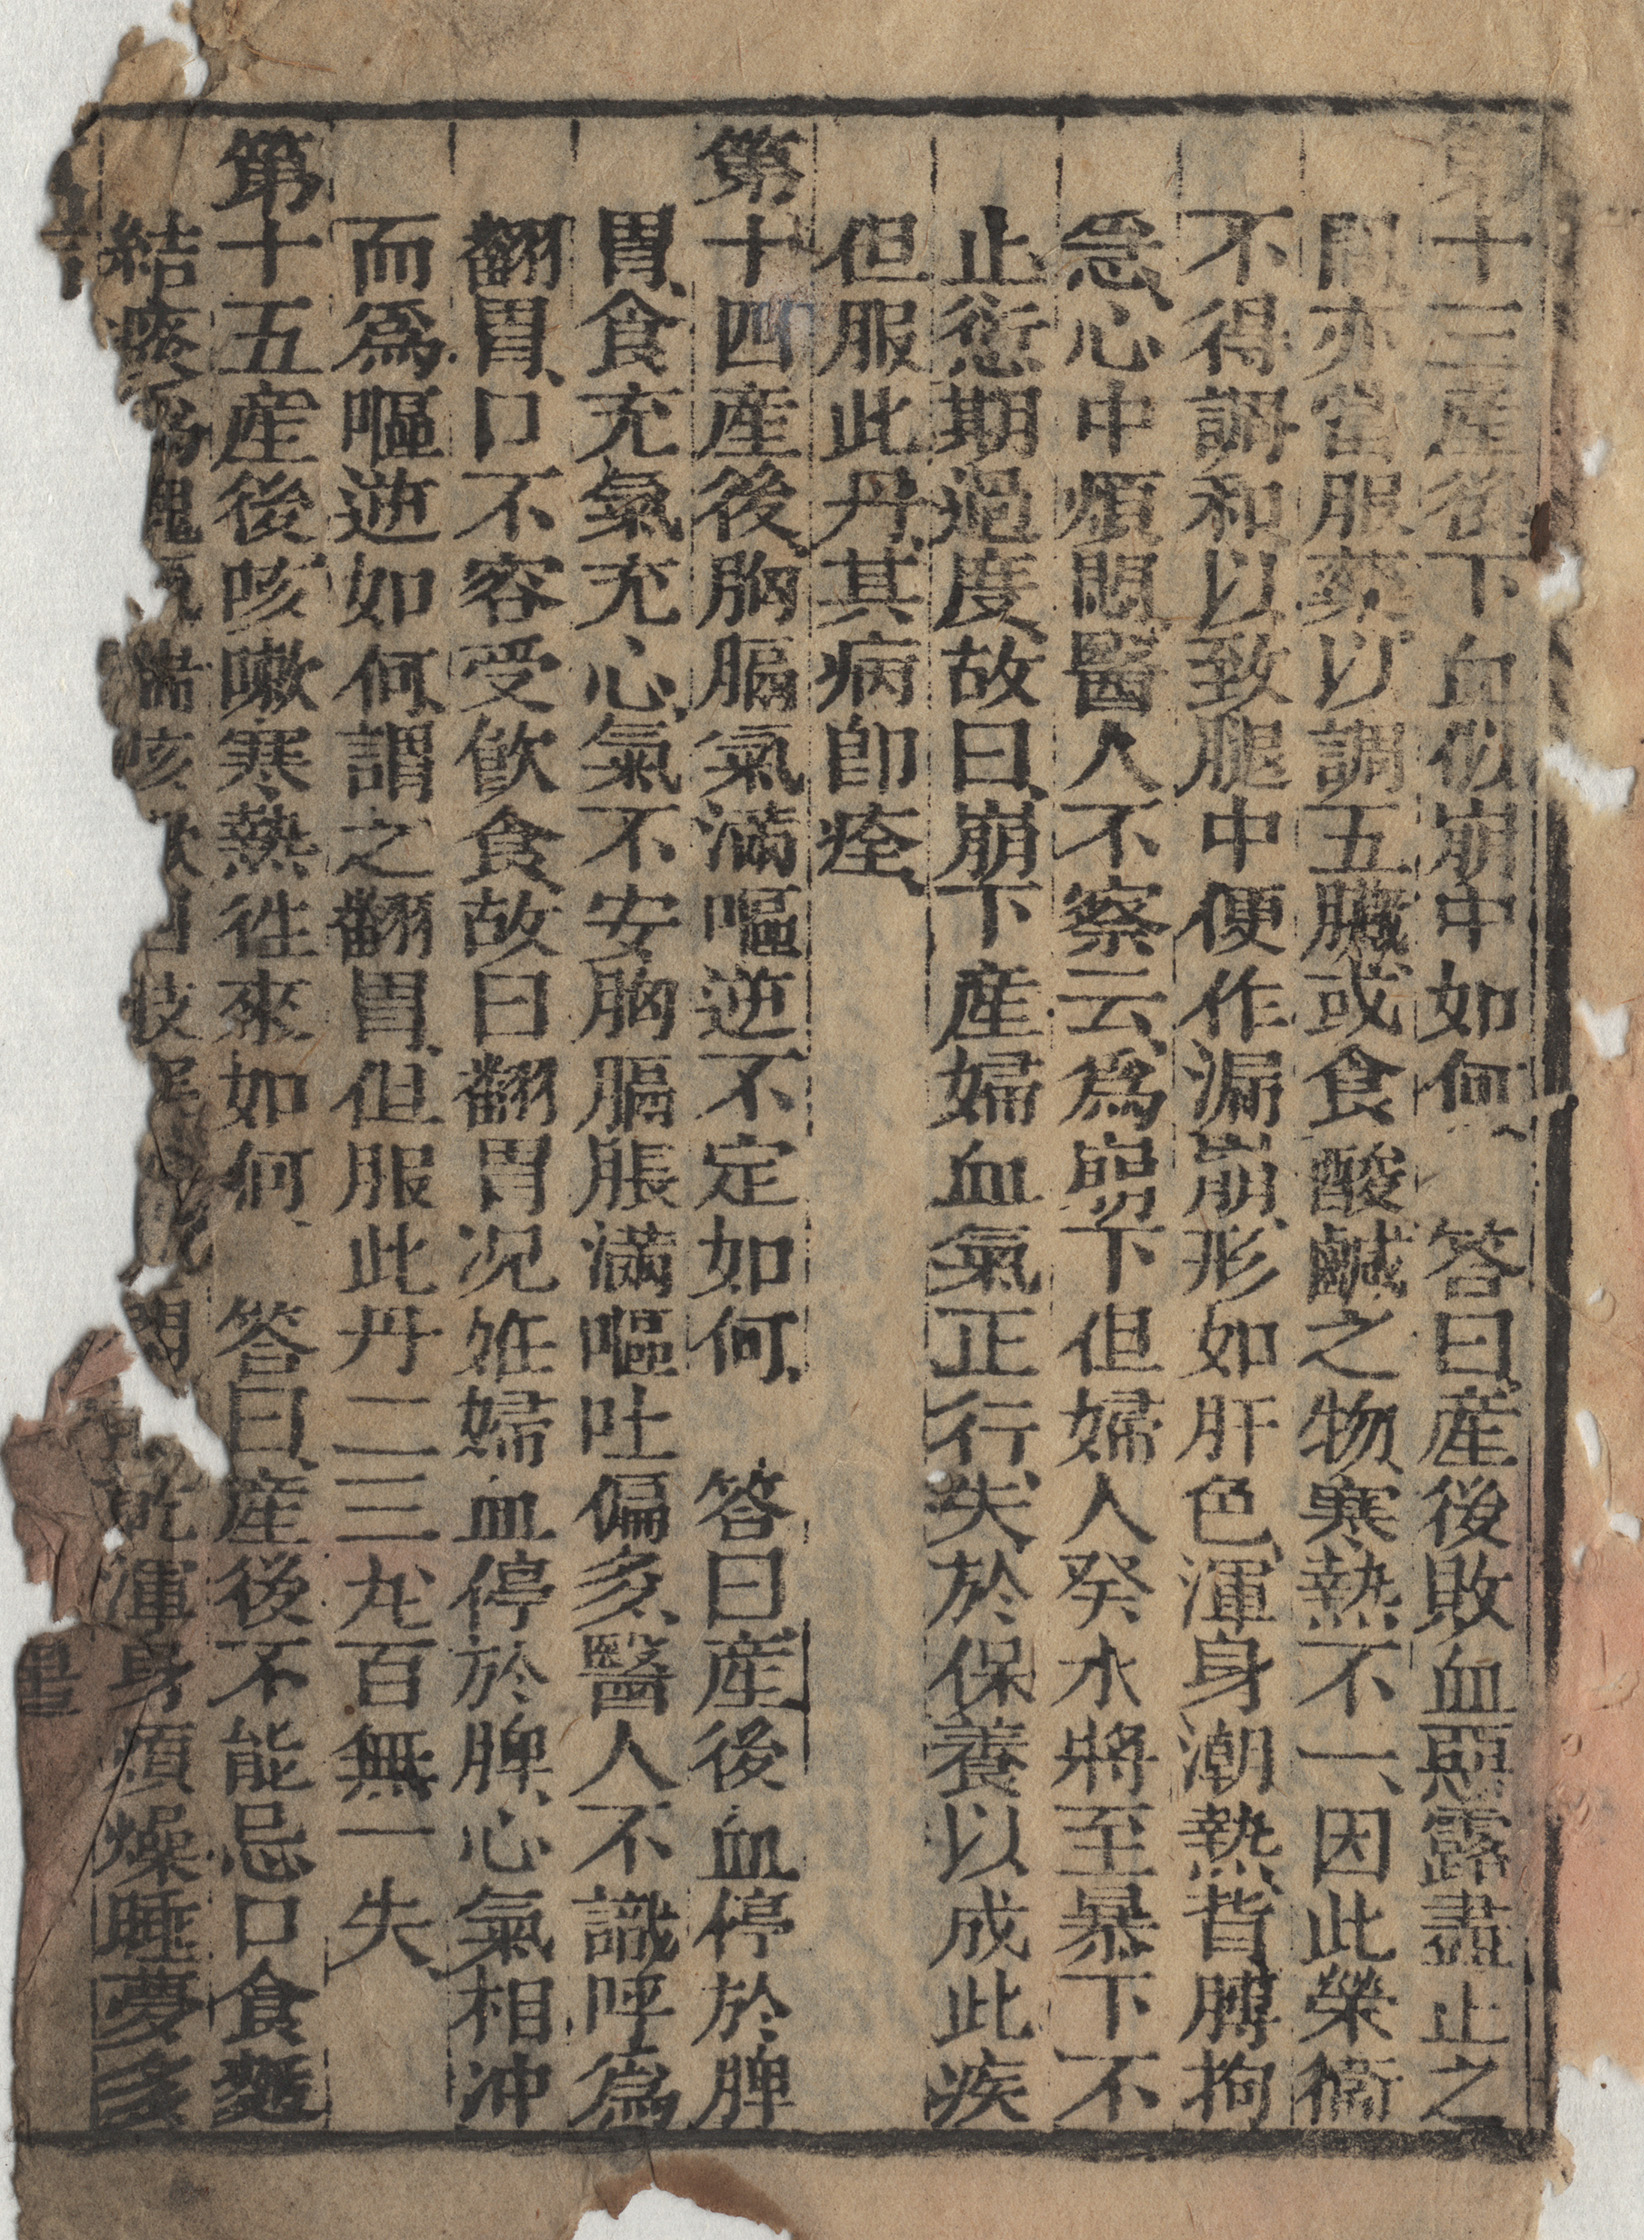 第十三産後下血似崩中如何、 答曰、産後敗血惡露盡止之
間亦當服藥以調五臟或食酸鹹之物、寒熱不一、因此榮衞
不得調和以致腿中便作漏崩、形如肝色、渾身潮熱、背膊拘
急、心中煩悶、醫人不察云、爲崩下但婦人癸水將至暴下不
止愆期過度、故曰、崩下 産婦血氣正行失於保養以成此疾
但服此丹、其病卽痊、
第十四産後、胸膈氣滿嘔逆不定如何、 答曰産後血停於脾
胃、食充氣充心、氣不安胸膈脹滿嘔吐偏多、醫人不識呼爲
翻胃、口不容受飮食、故曰翻胃況姙婦血停於脾、心氣相沖
而爲嘔逆如何、謂之翻胃、但服此丹二三九百無一失、
第十五産後咳嗽寒熱徃來如何、 答曰、産後不能忌口食麪
結 渾身煩燥睡夢多